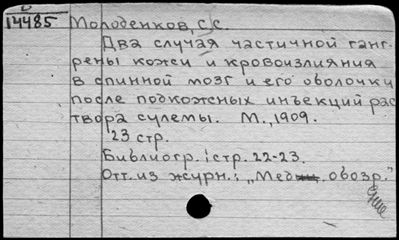 14485 Молоденков, С.С.
Два случая частичной ганг-
рены кожи и кровоизлияния
в спинной мозг и его оболочки
после подкожных инъекций рас
твора сулемы. М., 1909.
23 стр.
Библиогр.: стр. 22-23.
Отт. из журн.: „Мед. обозр."